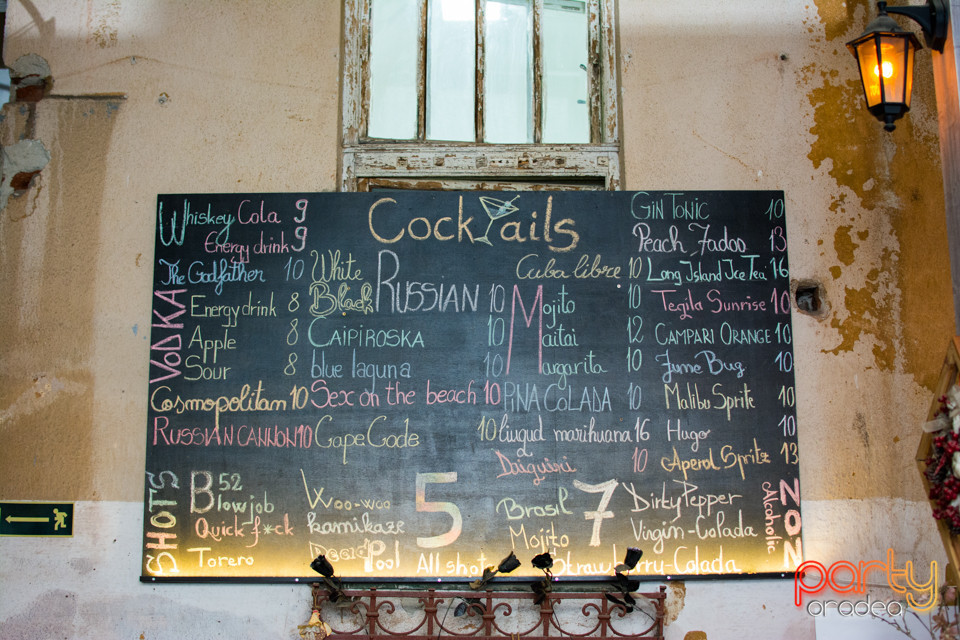 Cocktails
Whiskey Cola 9
Energy drink 9
The Godfather 10
VODKA
Energy drink 8
Apple 8
Sour 8
Cosmopolitan 10
Russian Cannon 10
White
Black
Russian 10
Caipiroska 10
blue laguna 10
Sex on the beach 10
Cape Code 10
Cuba libre 10
Mojito 10
Maitai 12
Margarita 10
Pina Colada 10
liugud marihuana 16
Daiguiri 10
Gin Tonic 10
Peach Fadoo 13
Long Island Ice Tea 16
Tegila Sunrise 10
Campari Orange 10
June Bug 10
Malibu Sprite 10
Hugo 10
Aperol Spritz 13
SHOTS
B52
Blowjob
Quick f*ck
Torero
Woo-woo
kamikaze
Dead Pool
5
All shot
Brasil
Mojito
7
Dirty Pepper
Virgin-Colada
Strawberry-Colada
NON
Alcoholic
party
oradea